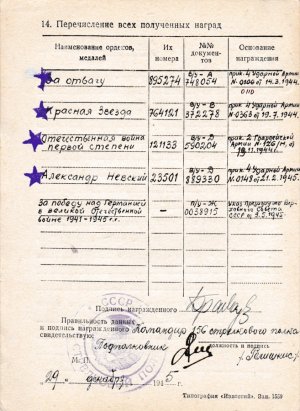 14. Перечисление всех полученных наград
Наименование орденов, медалей
Их номера
№№ документов
Основание награждения
За отвагу 895274 в/у-А 748054 прик. 4 Ударной Армии № 0104 от 14.3.1944.
Красная Звезда 764121 в/у-В 372278 прик. 4 Ударной Армии № 0363 от 19.7.1944.
Отечественная война первой степени 121133 в/у-А 590204 прик. 2 Гвардейской Армии № 126/н, от 19.11.1944г.
Александр Невский 23501 в/у-Б 889330 прик. 4 Ударной Армии № 0148 от 21.2.1945.
За победу над Германией в великой Отечественной войне 1941-1945 г.г. п/у-Ж 0038915 указ Президиума Верховного Совета СССР от 9.5.1945
Подпись награжденного
Правильность данных
и подпись награжденного Командир 156 стрелкового полка
свидетельствую:
должность и подпись
Подполковник
М. П.
СССР
29 декабря 1945 г.
Типография «Известий». Зак. 1569